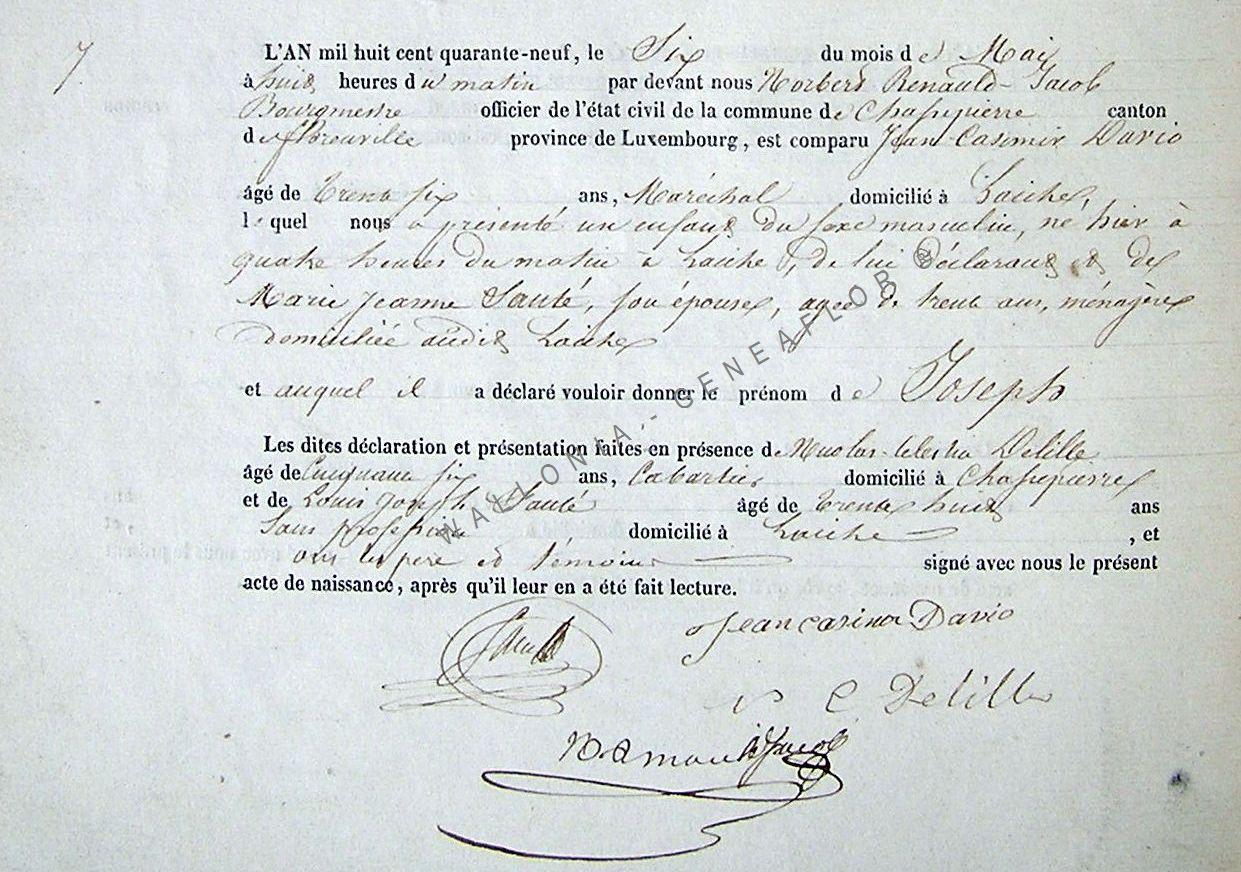 7
L'AN mil huit cent quarante-neuf, le Six du mois de Mai
à huit heures du matin par devant nous Norbert Renauld-Jacob
Bourgmestre officier de l'état civil de la commune de Chassepierre canton
de florenville province de Luxembourg, est comparu Jean Casimir Davio
âgé de trente six ans, Maréchal domicilié à Laiche,
lequel nous a présenté un enfant du sexe masculin, né hier à
quatre heures du matin à Laiche, de lui déclarant et de
Marie Jeanne Santé, son épouse, agée de trente ans, ménagère
domiciliée audit Laiche
et auquel il a déclaré vouloir donner le prénom de Joseph
Les dites déclaration et présentation faites en présence de Delille
âgé de Cinquante six ans, Cabartier domicilié à Chassepierre
et de Louis Joseph Santé âgé de trente huit ans
Sans profession, domicilié à Laiche, et
ont les père et témoins signé avec nous le présent
acte de naissance, après qu'il leur en a été fait lecture.
Jean casimir Davio
N C Delille
Jacob
WALLONIA - GENEAFLOB ©